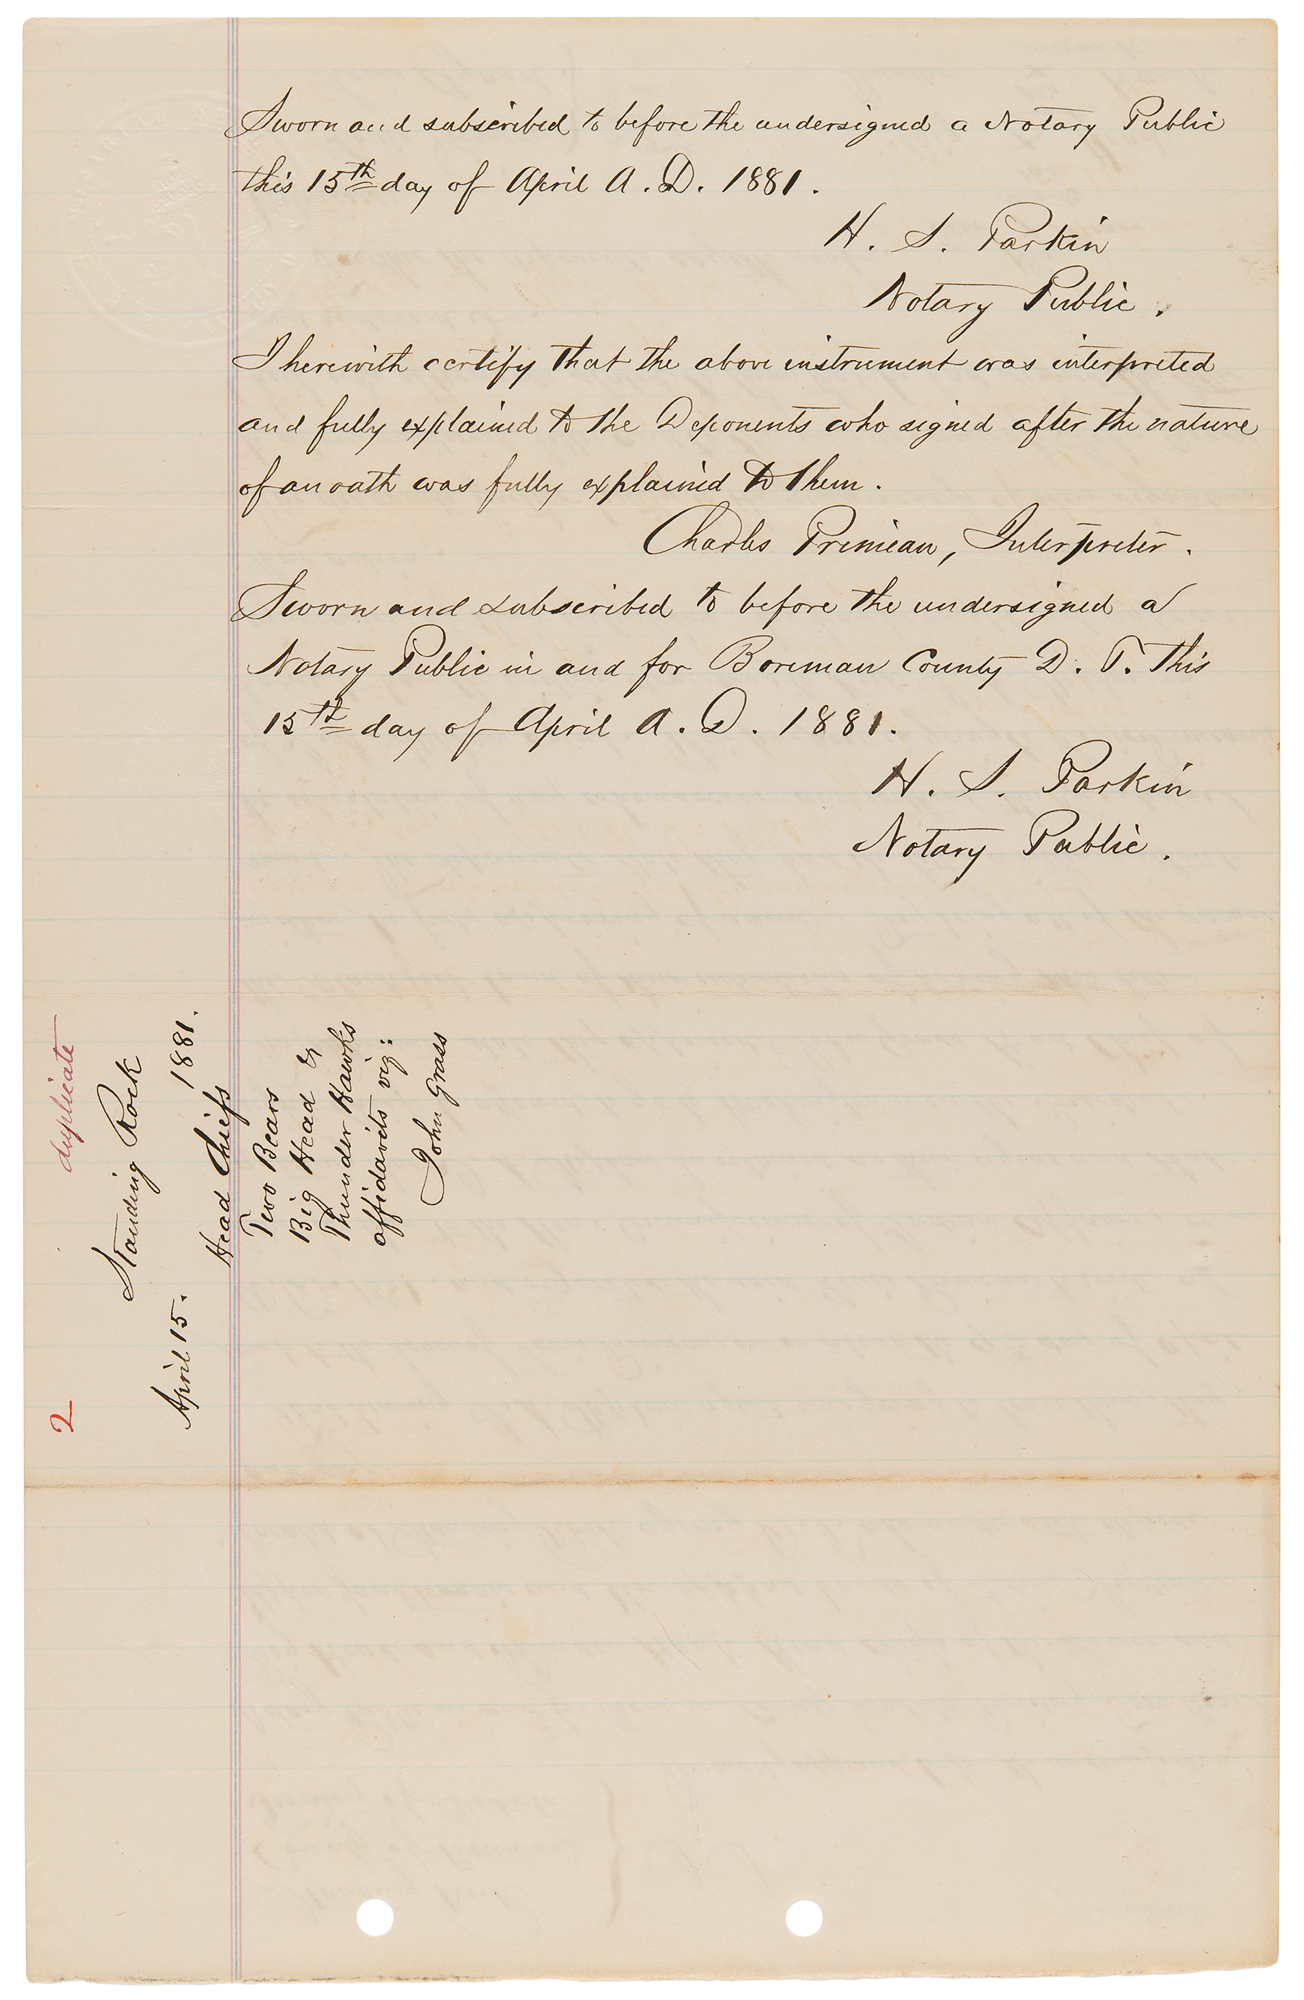 Sworn and subscribed to before the undersigned a Notary Public
this 15th day of April A. D. 1881.
H. S. Parkin
Notary Public.
I herewith certify that the above instrument was interpreted
and fully explained to the Deponents who signed after the nature
of an oath was fully explained to them.
Charles Primeau, Interpreter.
Sworn and subscribed to before the undersigned a
Notary Public in and for Boreman County D. T. this
15th day of April A. D. 1881.
H. S. Parkin
Notary Public.
2 duplicate
Standing Rock
April 15. 1881.
Head Chiefs
Two Bears
Big Head &
Thunder Hawks
affidavits viz:
John Grass